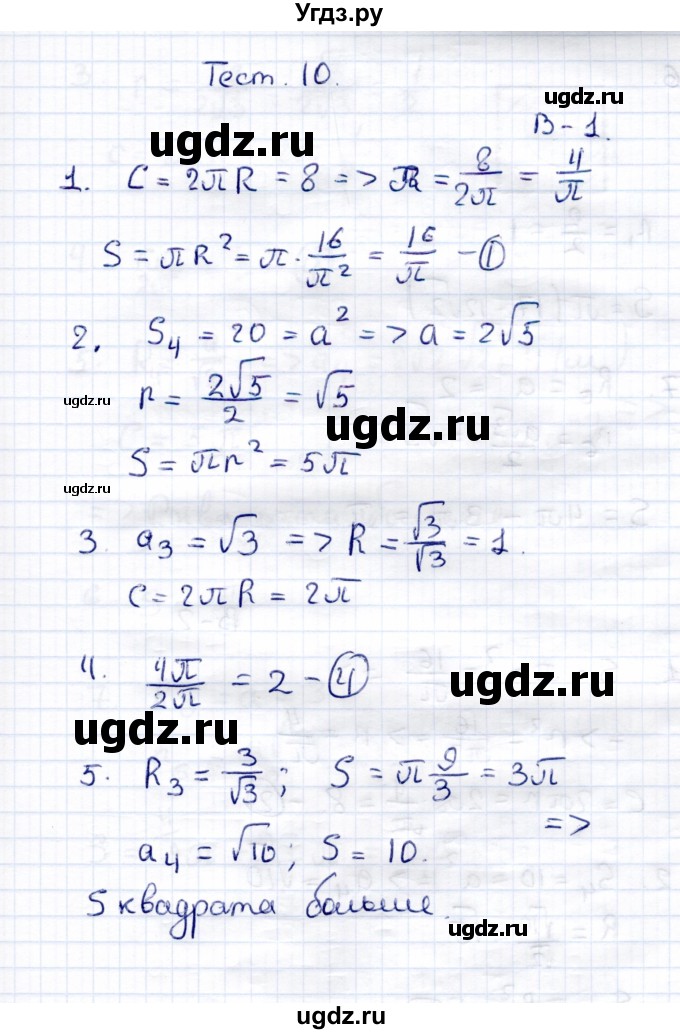 Угдз.ру
Тест. 10.
ugdz.ru
ugdz.ru
В-1.
1. C = 2πR = 8 => R = 8/2π = 4/π
S = πR² = π · 16/π² = 16/π - ①
2. S₄ = 20 = a² => a = 2√5
ugdz.ru
r = 2√5/2 = √5
ugdz.ru
S = πr² = 5π
ugdz.ru
3. a₃ = √3 => R = √3/√3 = 1.
C = 2πR = 2π
4. 4π/2π = 2 - ④
ugdz.ru
ugdz.ru
5. R₃ = 3/√3; S = π 9/3 = 3π
=>
a₄ = √10; S = 10.
S квадрата больше.
ugdz.ru
ugdz.ru